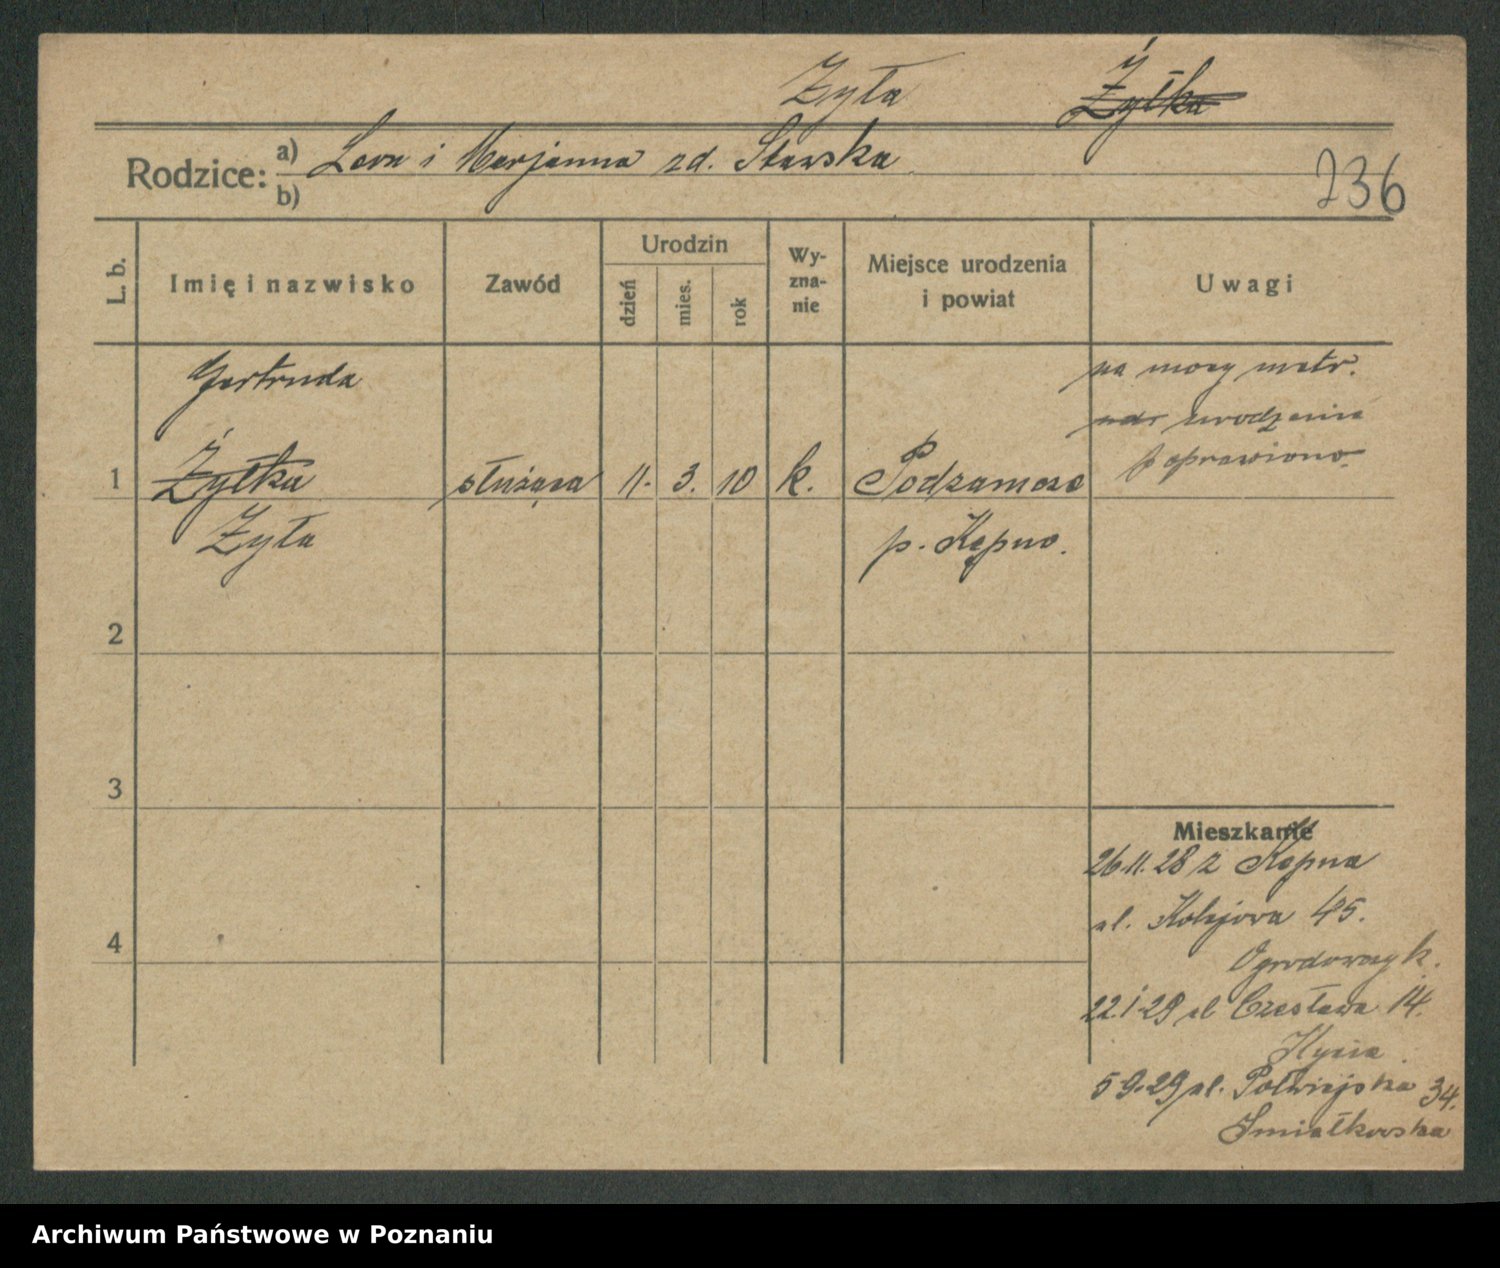 Zyła Żyłka
Rodzice: a) Leon i Marjanna zd. Stawska
b)
236
L. b. Imię i nazwisko Zawód Urodzin dzień mies. rok Wy-zna-nie Miejsce urodzenia i powiat Uwagi
Gertruda
na mocy metr.
urodzenia
poprawiono
1 Żyłka służąca 11. 3. 10 k. Podzamcze
Zyła p. Kępno.
2
3
Mieszkanie
26.11.28 z Kępna
ul. Kolejowa 45.
4
Ogrodowczyk.
22.1.29 ul Czesława 14.
5 9.29 ul. Półwiejska 34.
Smiałkowska
Archiwum Państwowe w Poznaniu